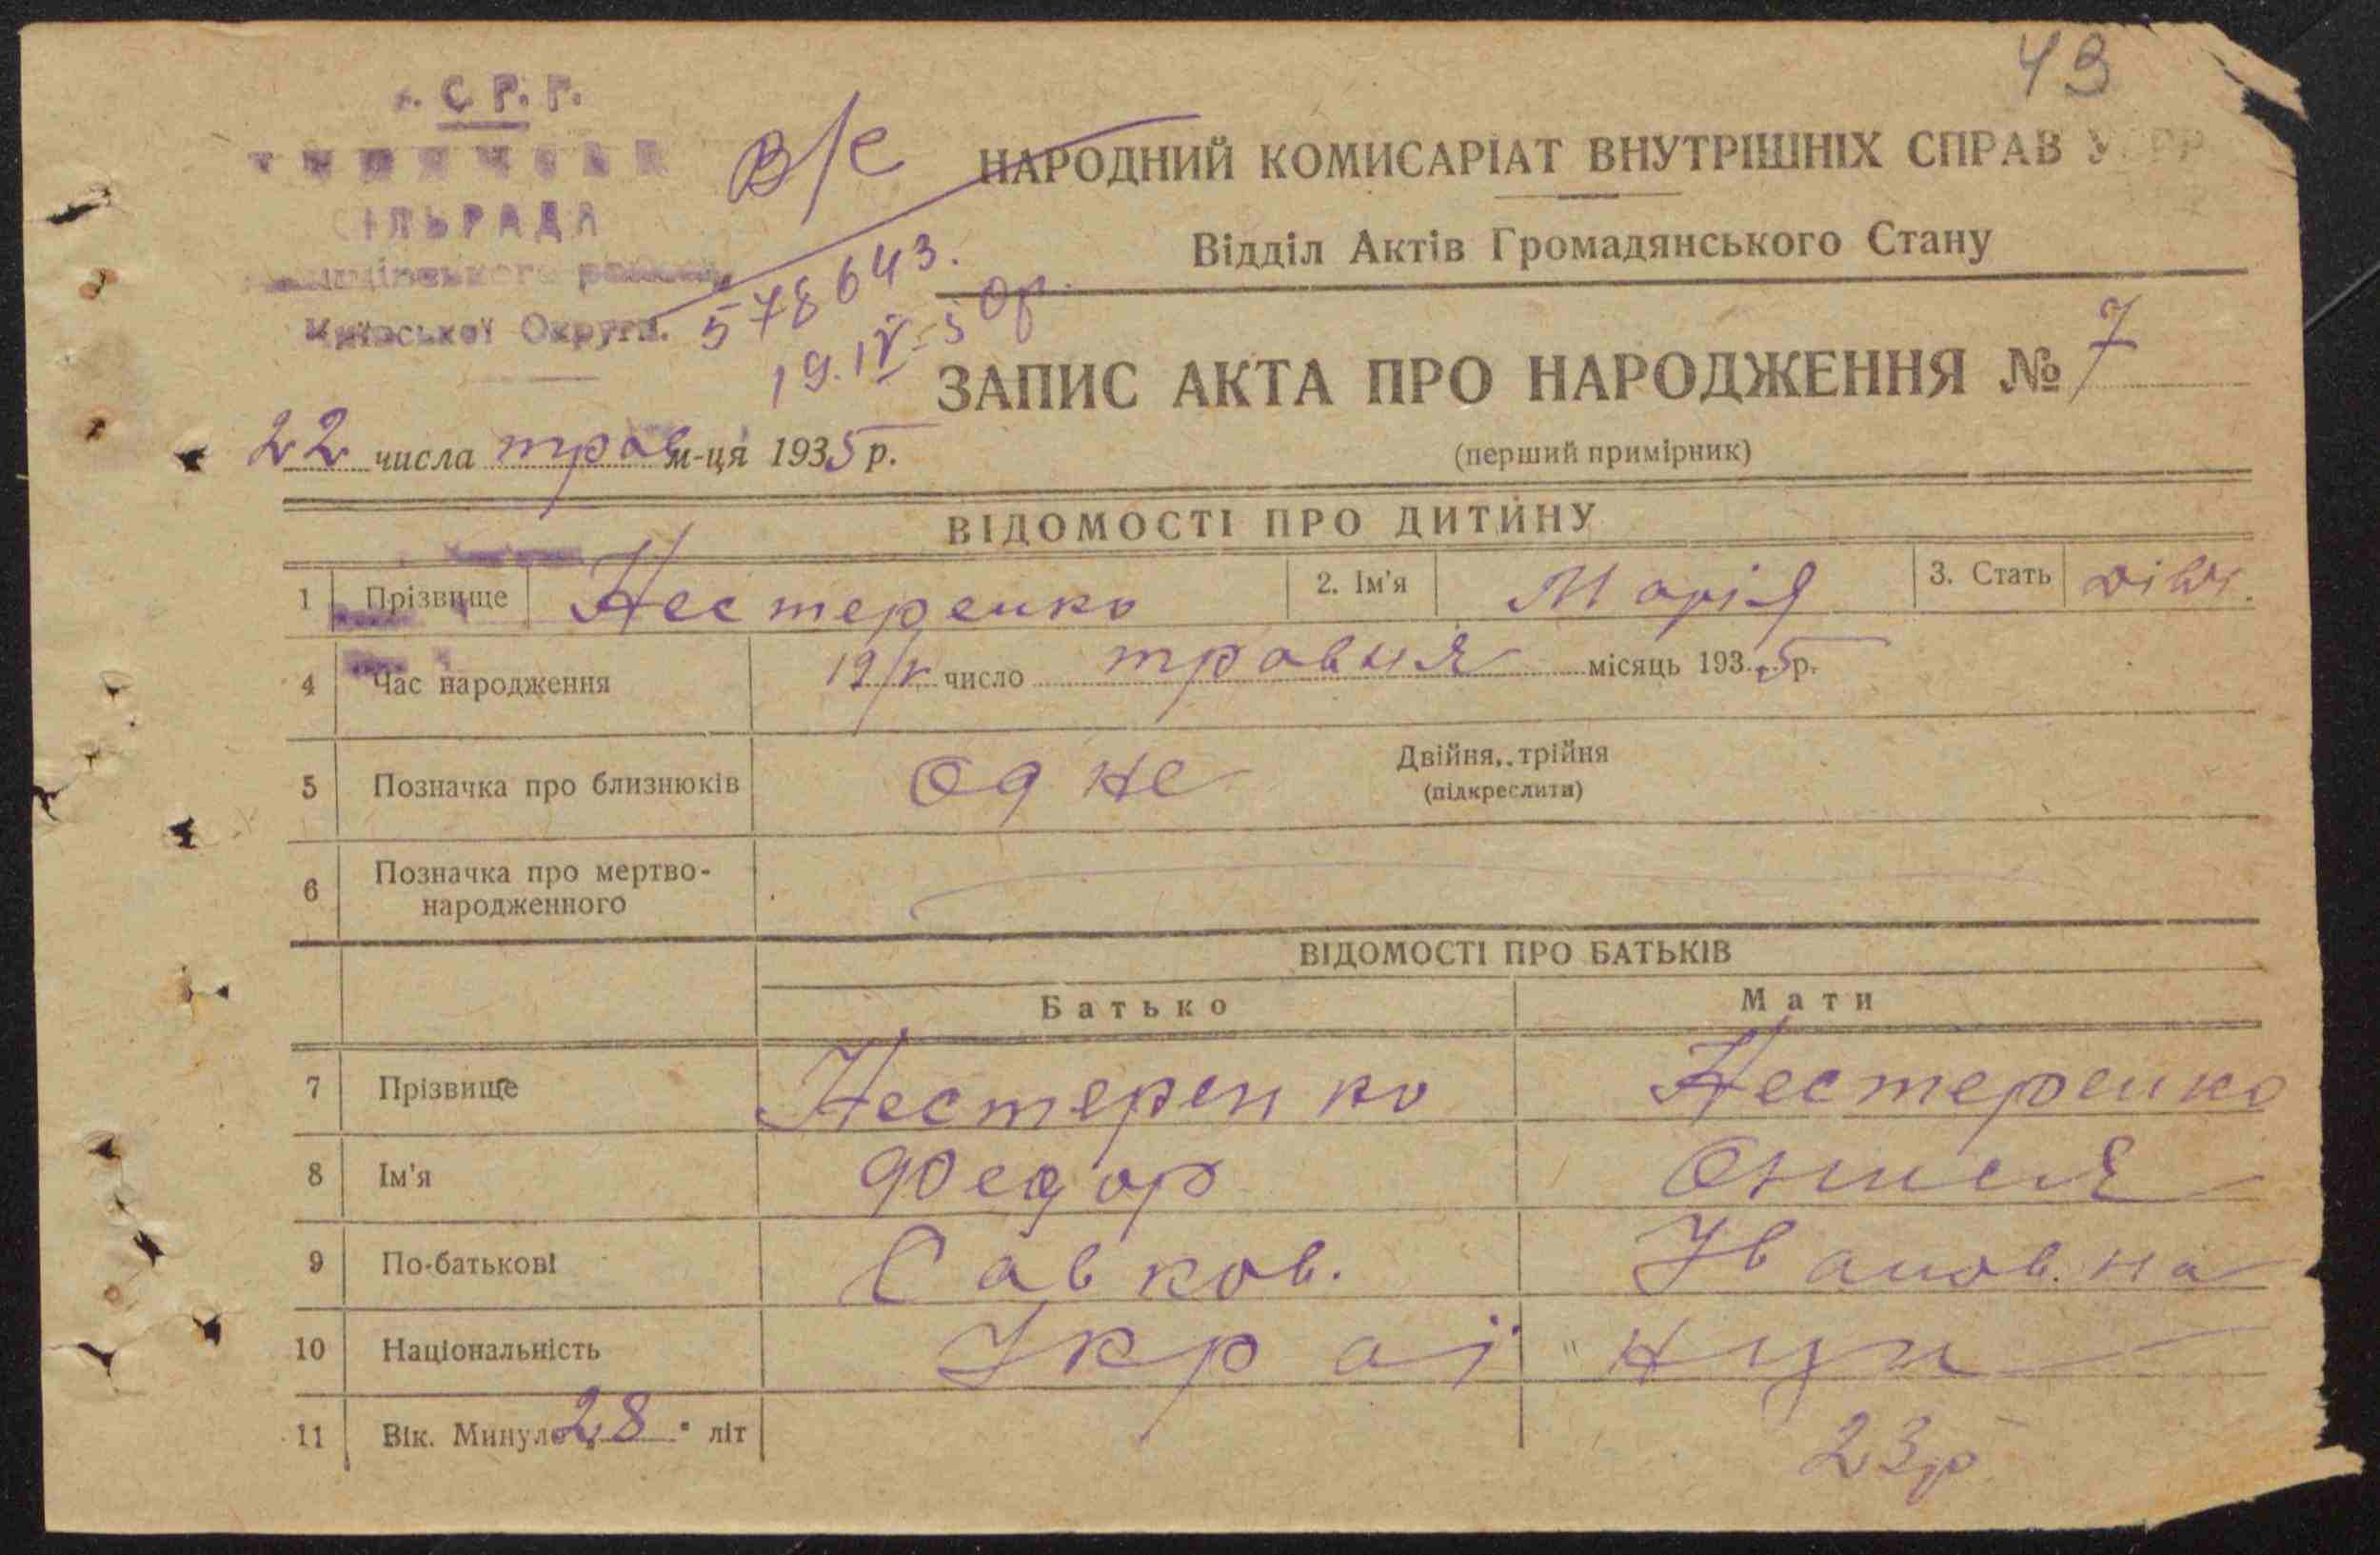 43
С. Р. Р.
СІЛЬРАДА
Київської Округи.
В/к
578643.
НАРОДНИЙ КОМИСАРІАТ ВНУТРІШНІХ СПРАВ УСРР
Відділ Актів Громадянського Стану
ЗАПИС АКТА ПРО НАРОДЖЕННЯ № 7
(перший примірник)
22 числа трав м-ця 1935 р.
ВІДОМОСТІ ПРО ДИТИНУ
1 Прізвище Нестеренко 2. Ім'я Марія 3. Стать дівч.
4 Час народження 19/V число травня місяць 1935 р.
5 Позначка про близнюків Одне Двійня, трійня
(підкреслити)
6 Позначка про мертво-
народженного
ВІДОМОСТІ ПРО БАТЬКІВ
Батько Мати
7 Прізвище Нестеренко Нестеренко
8 Ім'я Федор Онися
9 По-батькові Савков. Іванов.на
10 Національність Украї нци
11 Вік. Минуло 28 літ 23р